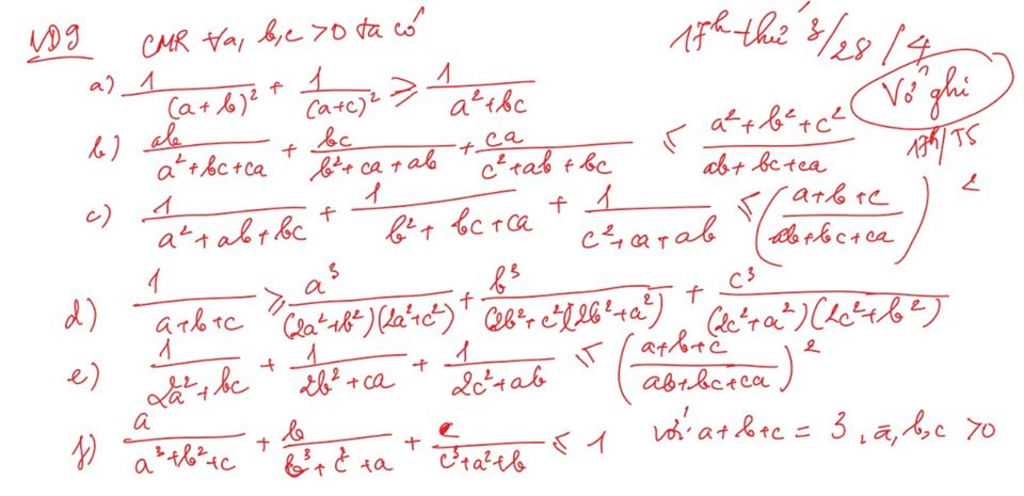 VD9 CMR ∀a, b,c >0 ta có
17h thứ 3/28/4
a) 1/(a+b)² + 1/(a+c)² ≥ 1/(a²+bc)
Vở ghi
b) ab/(a²+bc+ca) + bc/(b²+ca+ab) + ca/(c²+ab+bc) ≤ (a²+b²+c²)/(ab+bc+ca)
c) 1/(a²+ab+bc) + 1/(b²+bc+ca) + 1/(c²+ca+ab) ≤ ((a+b+c)/(ab+bc+ca))²
d) 1/(a+b+c) ≥ a³/((2a²+b²)(2a²+c²)) + b³/((2b²+c²)(2b²+a²)) + c³/((2c²+a²)(2c²+b²))
e) 1/(2a²+bc) + 1/(2b²+ca) + 1/(2c²+ab) ≤ ((a+b+c)/(ab+bc+ca))²
f) a/(a³+b²+c) + b/(b³+c²+a) + c/(c³+a²+b) ≤ 1 với a+b+c = 3, a, b,c >0